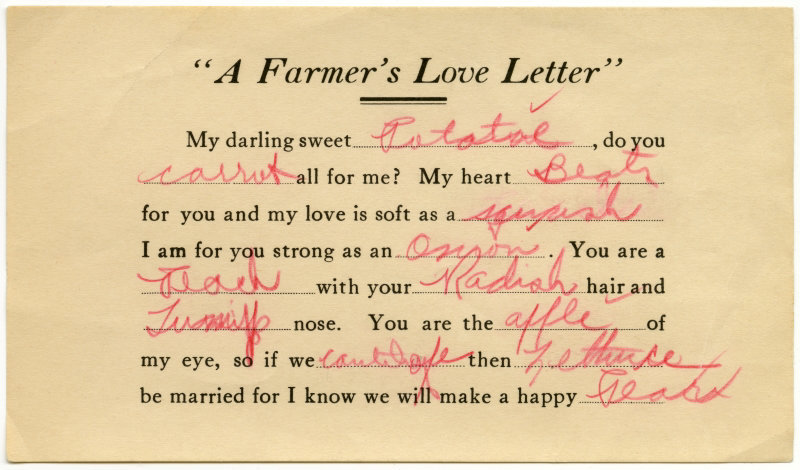 "A Farmer's Love Letter"
My darling sweet Potatoe, do you
carrot all for me? My heart Beats
for you and my love is soft as a squash
I am for you strong as an Onion. You are a
Peach with your Radish hair and
Turnip nose. You are the apple of
my eye, so if we cantelope then Lettuce
be married for I know we will make a happy Pears